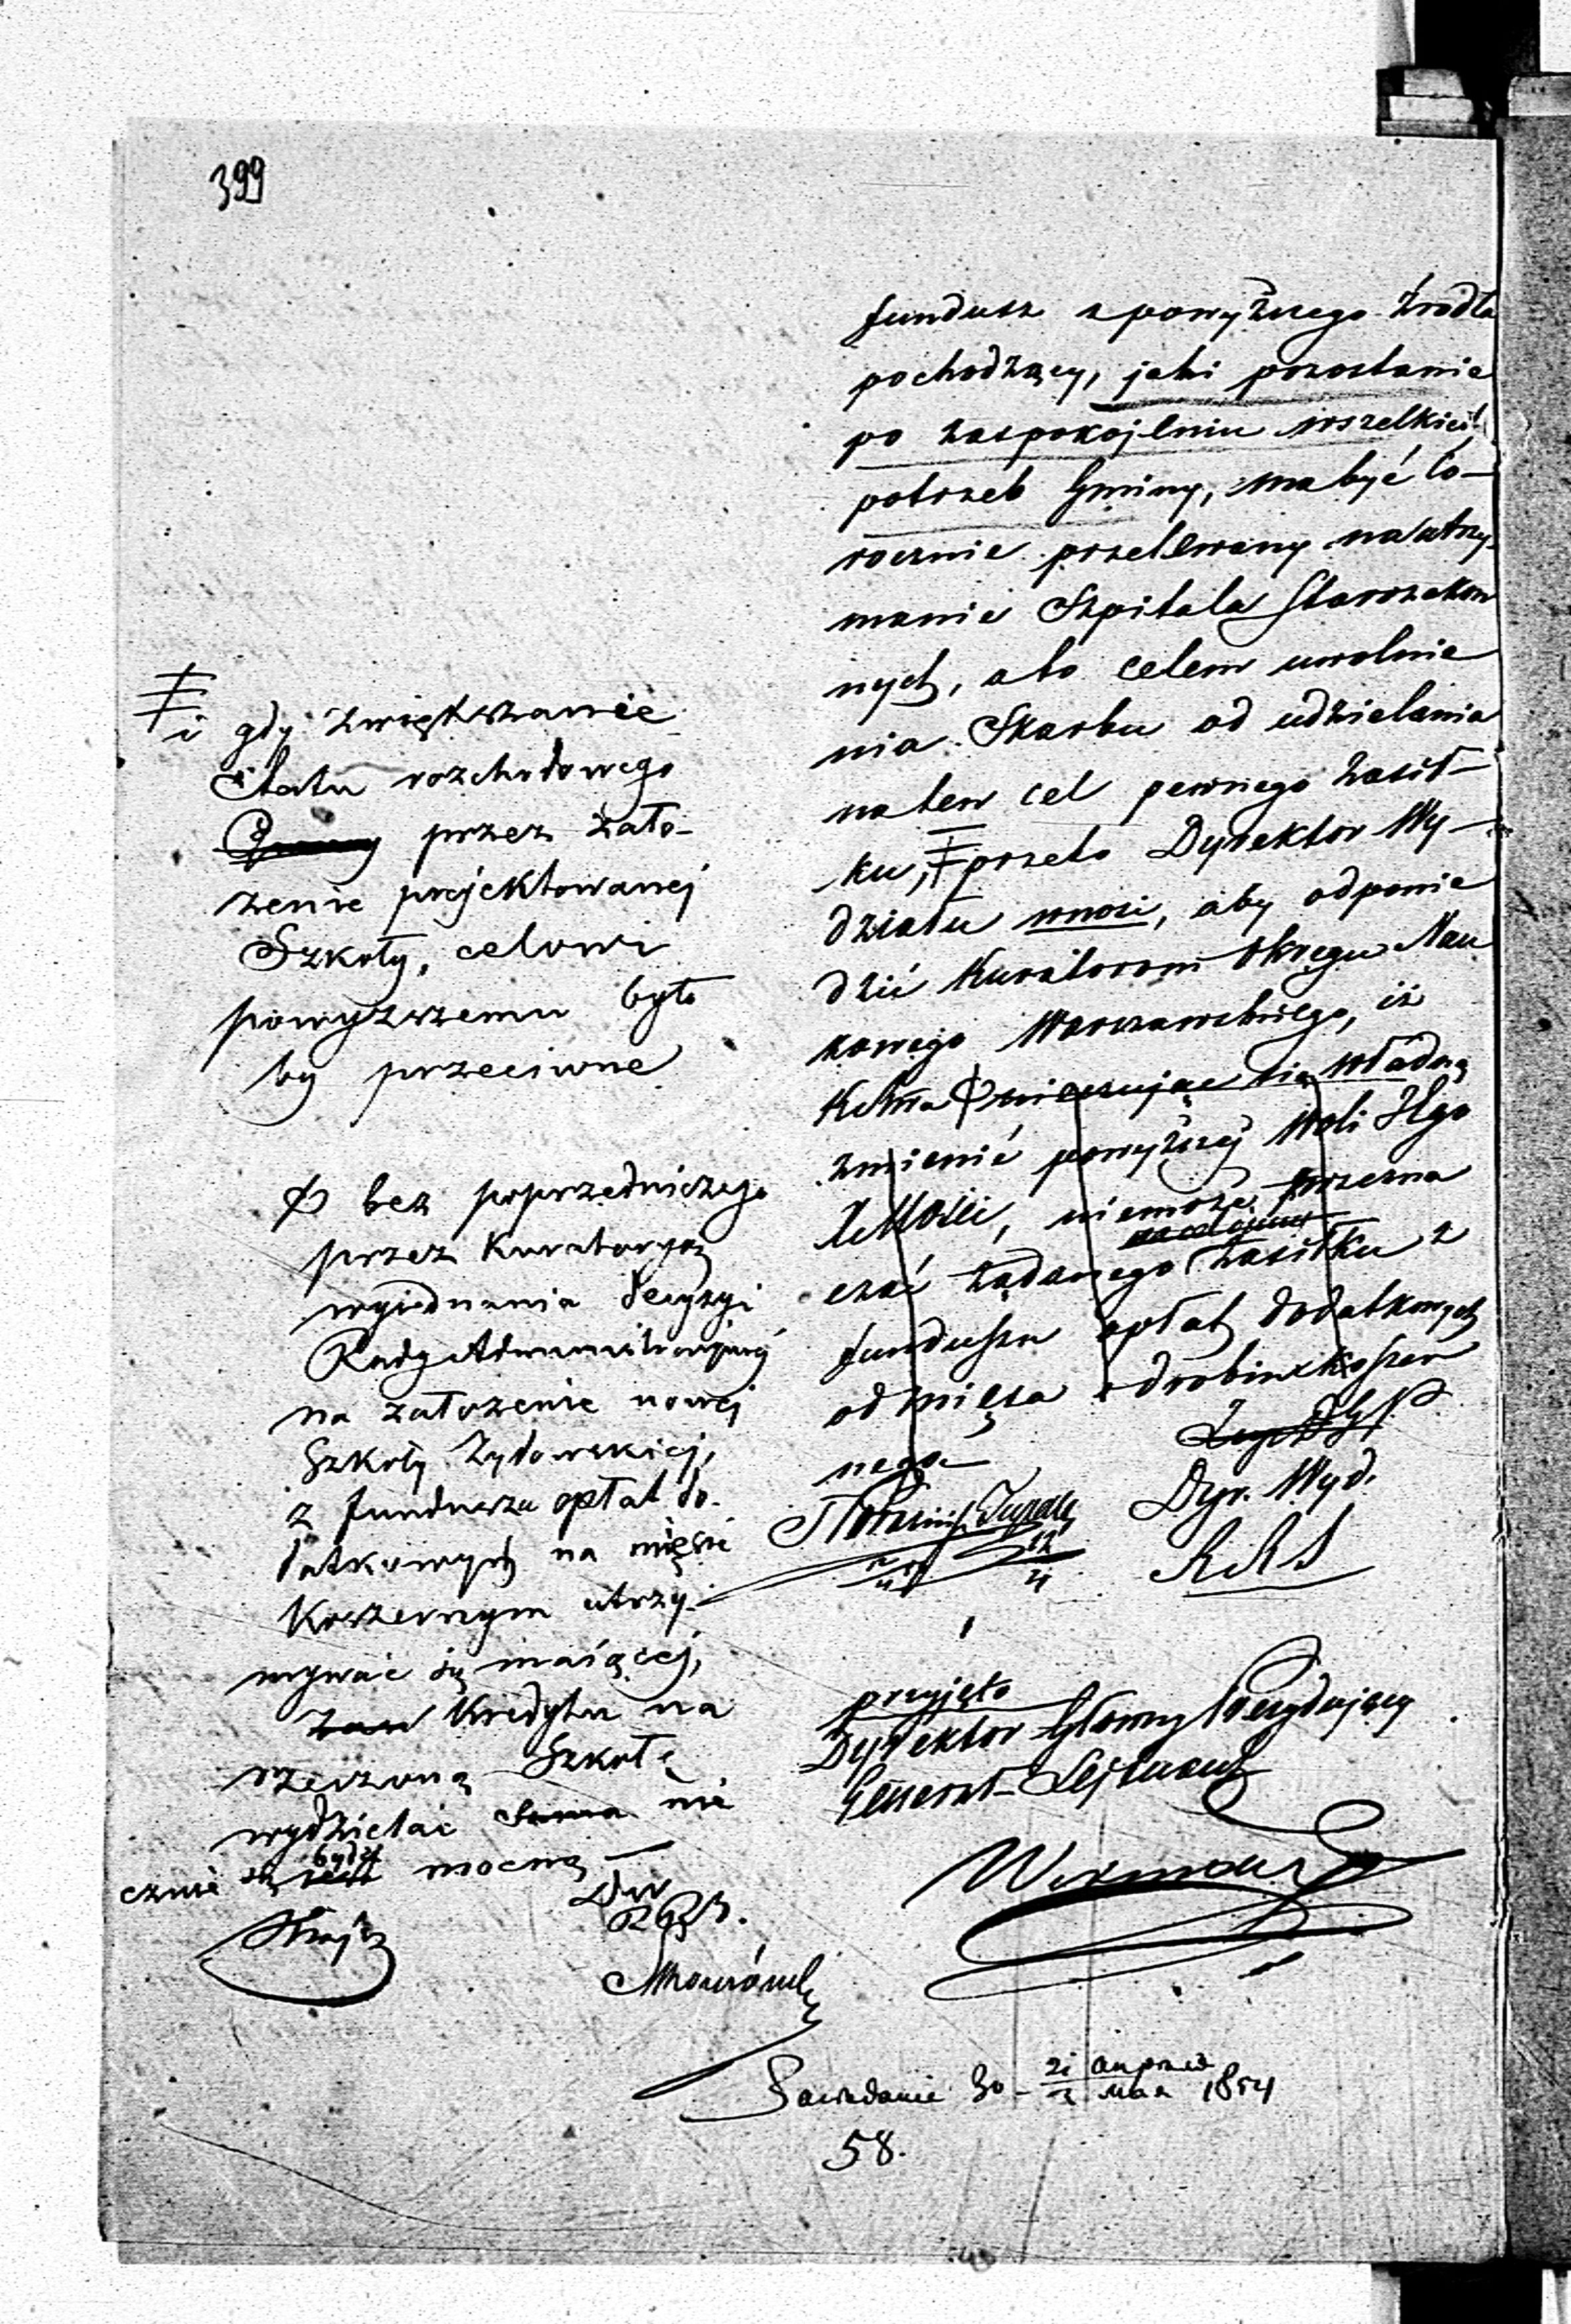 399
fundusz z powyższego źródła
pochodzący, jaki pozostanie
po zaspokojeniu wszelkich
potrzeb Gminy, ma być co-
rocznie przelewany na utrzy-
manie Szpitala Starozakon
nych, a to celem uwolnie
nia Skarbu od udzielania
na ten cel pewnego zasił-
ku, przeto Dyrektor Wy-
działu wnosi, aby odpowie
dzić Kuratorom Okręgu Nau
kowego Warszawskiego, iż
nie czując się władną
zmienić powyższej Woli JEgo
niemoże przezna
czać żądanego zasiłku z
funduszu opłat dodatkowych
od mięsa i drobiu koszer
nego
Dyr. Wyd.
przyjęto
Dyrektor Główny Prezydujący
Generał-Lejtnant
i gdy zwiększanie
Etatu rozchodowego
przez zało-
żenie projektowanej
Szkoły, celowi
powyższemu było
by przeciwne
bez poprzedniczego
przez Kuratoryą
wyjednania decyzyi
Rady Administracyjnej
na założenie nowej
Szkoły Żydowskiej,
z funduszu opłat do-
datkowych na mięsie
Koszernym utrzy-
mywać się maiącej,
Kredytu na
rzeczoną Szkołę
wydzielać nie
czuie się być mocną
Posiedzenie 30 1854
58.